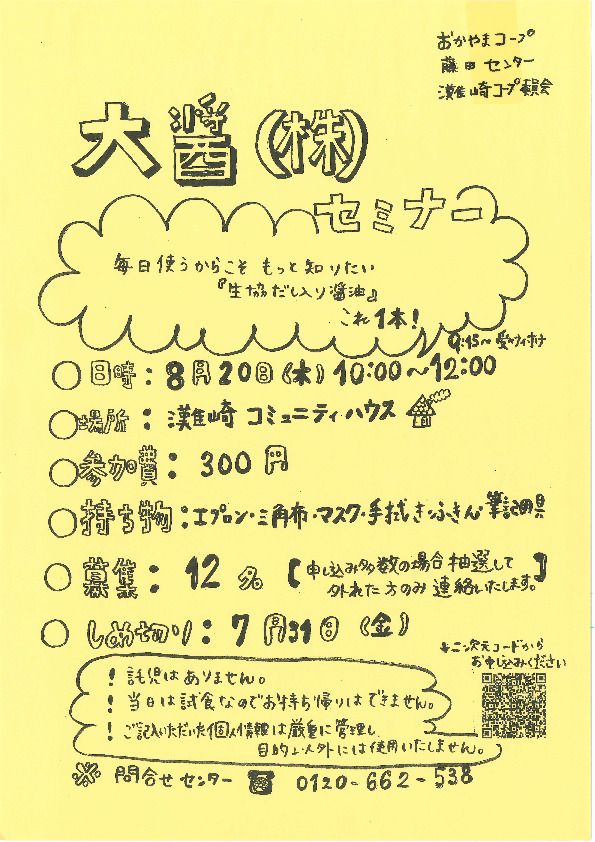 おかやまコープ
藤田センター
灘崎コープ委員会
大醤(株)
セミナー
毎日使うからこそ もっと知りたい
『生協だし入り醤油』
これ1本!
9:45〜受け付け
○日時:8月20日(木)10:00〜12:00
○場所:灘崎コミュニティハウス
○参加費:300円
○持ち物:エプロン・三角布・マスク・手拭き・ふきん 筆記用具
○募集:12名 【申し込み多数の場合抽選して
外れた方のみ連絡いたします。】
○しめ切り:7月31日(金)
↓二次元コードから
お申し込みください
! 託児はありません。
! 当日は試食なのでお持ち帰りはできません。
! ご記入いただいた個人情報は厳重に管理し
目的以外には使用いたしません。
※ 問合せセンター ☎ 0120-662-538